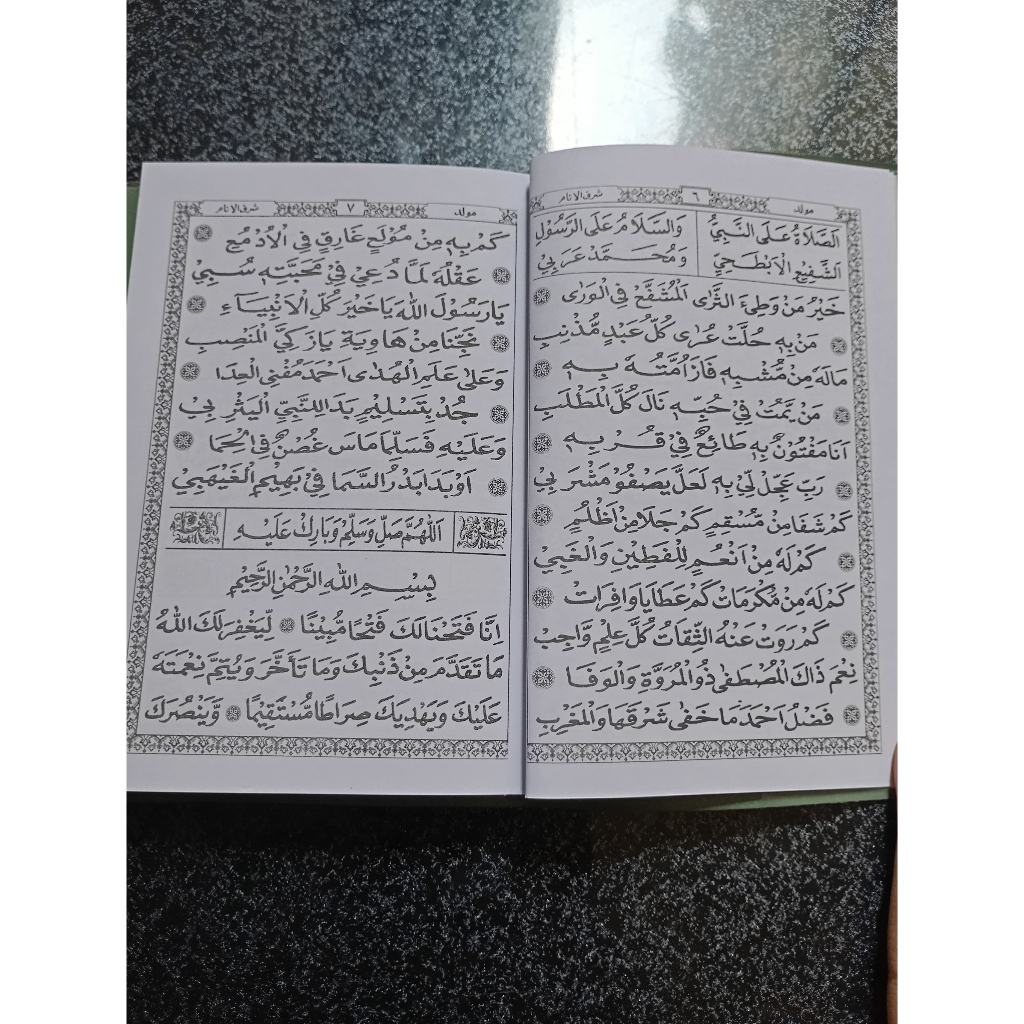 مولد ٦ شرف الانام
اَلصَّلَاةُ عَلَى النَّبِيُّ وَالسَّلَامُ عَلَى الرَّسُوْلِ
اَلشَّفِيْعِ الْاَبْطَحِيِّ وَمُحَمَّدْ عَرَبِيْ
خَيْرُ مَنْ وَطِئَ الثَّرٰى اَلْمُشَفَّعْ فِي الْوَرٰى
مَنْ بِهٖ حُلَّتْ عُرٰى كُلُّ عَبْدٍ مُّذْنِبِ
مَالَهٗ مِنْ مُّشْبِهٍ فَازَ اُمَّتُهٗ بِهٖ
مَنْ يَّمُتْ فِيْ حُبِّهٖ نَالَ كُلَّ الْمَطْلَبِ
اَنَا مَفْتُوْنٌ بِهٖ طَائِعٌ فِيْ قُرْبِهٖ
رَبِّ عَجِّلْ لِّيْ بِهٖ لَعَلَّ يَصْفُوْ مَشْرَبِيْ
كَمْ شَفَا مِنْ مُّسْقِمٍ كَمْ جَلَا مِنْ اَظْلُمٍ
كَمْ لَهٗ مِنْ اَنْعُمٍ لِلْفَطِيْنِ وَالْغَبِيْ
كَمْ لَهٗ مِنْ مَّكْرُمَاتْ كَمْ عَطَايَا وَافِرَاتْ
كَمْ رَوَتْ عَنْهُ الثِّقَاتُ كُلَّ عِلْمٍ وَّاجِبْ
نِعْمَ ذَاكَ الْمُصْطَفٰى ذُو الْمُرُوَّةِ وَالْوَفَا
فَضْلُ اَحْمَدَ مَا خَفٰى شَرْقَهَا وَالْمَغْرِبِ
مولد ٧ شرف الانام
كَمْ بِهٖ مِنْ مُوْلَعٍ غَارِقٍ فِي الْاَدْمُعِ
عَقْلُهٗ لَمَّا دُعِيْ فِيْ مَحَبَّتِهٖ سُبِيْ
يَا رَسُوْلَ اللّٰهِ يَا خَيْرَ كُلِّ الْاَنْبِيَاءِ
نَجِّنَا مِنْ هَاوِيَةٍ يَا زَكِيَّ الْمَنْصِبِ
وَعَلٰى عَلَمِ الْهُدٰى اَحْمَدَ مُفْنِي الْعِدَا
جُدْ بِتَسْلِيْمٍ بَدَا لِلنَّبِيِّ الْيَثْرِبِيْ
وَعَلَيْهِ فَسَلِّمَا مَاسَ غُصْنٌ فِي الْحِمَا
اَوْ بَدَا بَدْرُ السَّمَا فِيْ بَهِيْمِ الْغَيْهَبِيْ
اَللّٰهُمَّ صَلِّ وَسَلِّمْ وَبَارِكْ عَلَيْهِ
بِسْمِ اللّٰهِ الرَّحْمٰنِ الرَّحِيْمِ
اِنَّا فَتَحْنَا لَكَ فَتْحًا مُّبِيْنًا ۞ لِّيَغْفِرَ لَكَ اللّٰهُ
مَا تَقَدَّمَ مِنْ ذَنْبِكَ وَمَا تَأَخَّرَ وَيُتِمَّ نِعْمَتَهٗ
عَلَيْكَ وَيَهْدِيَكَ صِرَاطًا مُّسْتَقِيْمًا ۞ وَّيَنْصُرَكَ